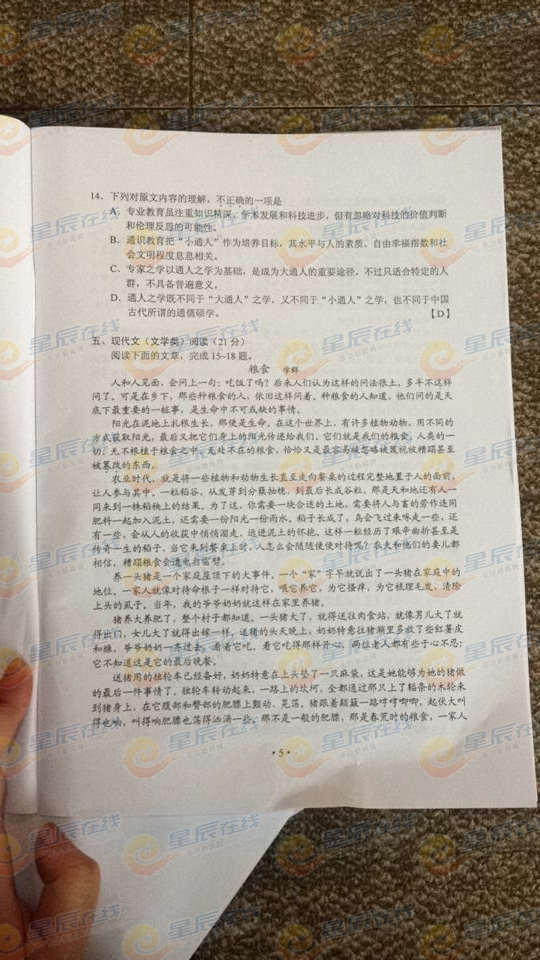 14、下列对原文内容的理解，不正确的一项是
A．专业教育虽注重知识精深、学术发展和科技进步，但有忽略对科技的价值判断
和伦理反思的可能性。
B．通识教育把“小通人”作为培养目标，其水平与人的素质、自由幸福指数和社
会文明程度息息相关。
C．专家之学以通人之学为基础，是成为大通人的重要途径，不过只适合特定的人
群，不具备普遍意义。
D．通人之学既不同于“大通人”之学，又不同于“小通人”之学，也不同于中国
古代所谓的通儒硕学。 【D】
五、现代文（文学类）阅读（21分）
阅读下面的文章，完成15～18题。
粮食 学群
人和人见面，会问上一句：吃饭了吗？后来人们认为这样的问法很土，多半不这样
问了。可是在乡下，那些种粮食的人，依旧这样问着。种粮食的人知道，他们问的是天
底下最重要的一桩事，是生命中不可或缺的事情。
阳光在泥地上扎根生长，那便是生命。在这个世界上，有许多植物动物，用不同的
方式获取阳光，最后又把它们身上的阳光传送给我们，它们就是我们的粮食。人类的一
切，无不根植于粮食之中。无处不在的粮食，恰恰又是最容易被忽略被漠视被糟蹋甚至
被篡改的东西。
农业时代，就是得一些植物和动物生长直至走向餐桌的过程完整地置于人的面前，
让人参与其中。一粒稻谷，从发芽到分蘖抽穗，到最后长成谷粒，那是天和地还有人一
同来到一株稻秧上的结果。为了这，你需要一块合适的土地，需要将人与畜的劳作连同
肥料一起加入泥土，还需要一份阳光一份雨水。稻子长成了，鸟会飞过来啄走一些，还
有一些，会从人的收获中悄悄溜走，逃进泥土的怀抱。这样一粒经历了艰辛曲折甚至是
传奇一生的稻子，当它来到餐桌上时，人怎么会随随便便对待呢？农夫和他们的妻儿都
相信，糟蹋粮食会遭电打雷劈。
养一头猪是一个家庭屋顶下的大事件，一个“家”字早就说出了一头猪在家庭中的
地位。一家人就像对待命根子一样对待它，喂它养它，为它搔痒，为它梳理毛发，清除
上头的虱子。当年，我的爷爷奶奶就这样在家里养猪。
猪养大养肥了，整个村子都知道。一头猪大了，就得送往肉食站，就像男儿大了就
得出门，女儿大了就得出嫁一样。送猪的头天晚上，奶奶特意往猪潲里多放了些红薯皮
和糠。爷爷奶奶一齐过去，看着它吃。看它吃得那样开心，两位老人都有些于心不忍：
它不知道这是它的最后晚餐。
送猪用的独轮车已经备好，奶奶特意在上头垫了一只麻袋，这是她能够为她的猪做
的最后一件事情了。独轮车转动起来，一路上的坎坷，全都通过那只上了辐条的木轮来
到猪身上，在它腹部和臀部的肥膘上颤动、晃荡。猪跟着颠簸一路哼哼唧唧，起伏大叫
得也响，叫得响肥膘也荡得汹涌一些。那不是一般的肥膘，那是春荒时的粮食，一家人
·5·